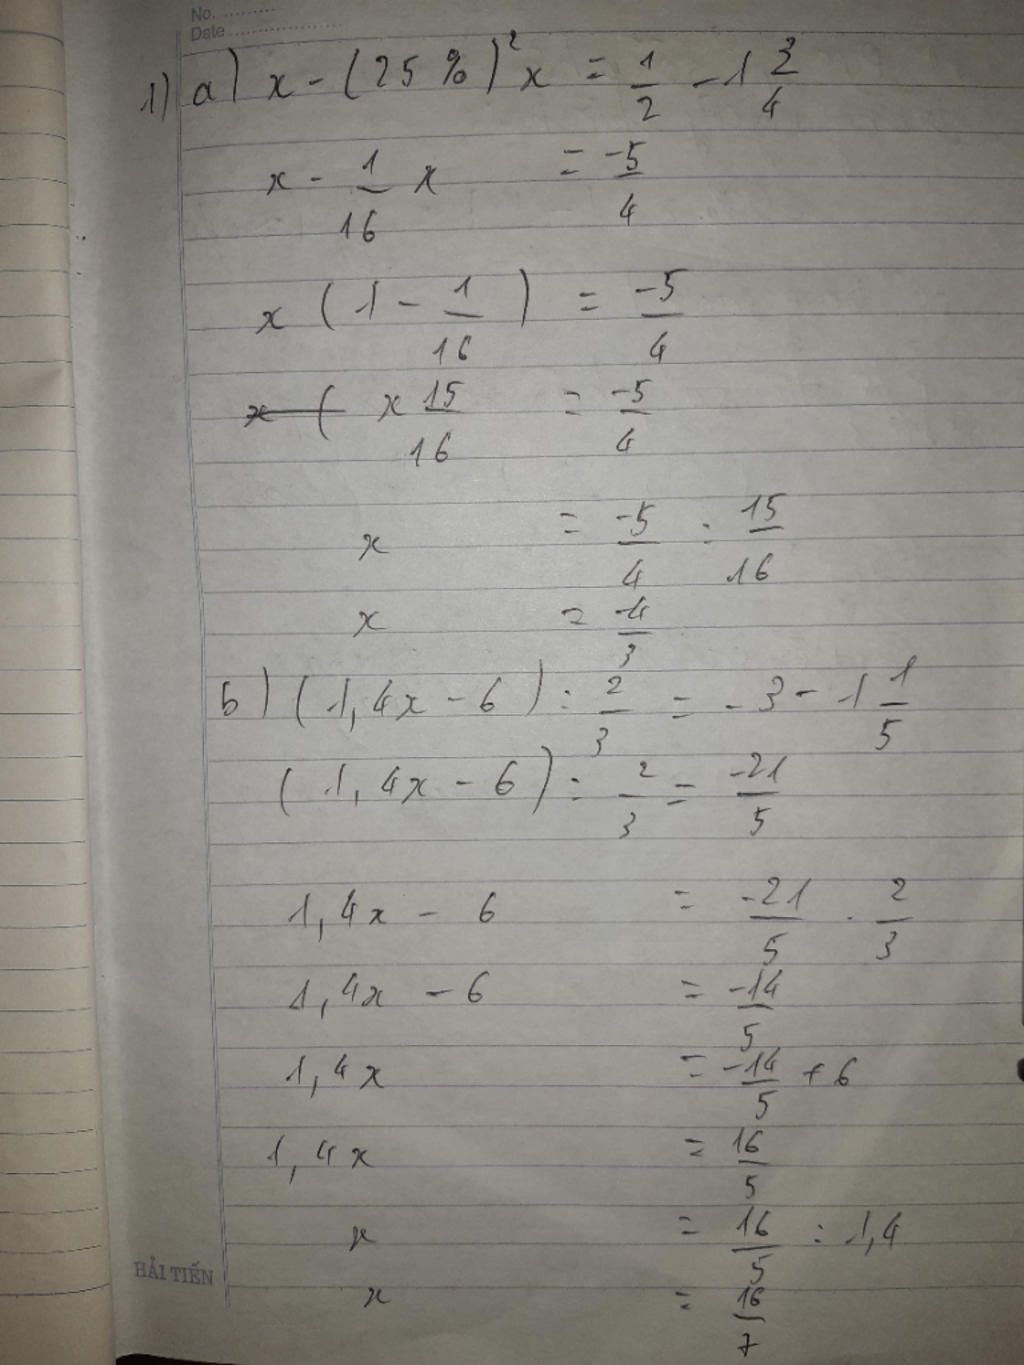 No. ..........
Date ....................
1) a) x - (25 %)² x = 1/2 - 1 3/4
x - 1/16 x = -5/4
x (1 - 1/16) = -5/4
x 15/16 = -5/4
x = -5/4 : 15/16
x = -4/3
b) (1,4x - 6) : 2/3 = -3 - 1 1/5
(1,4x - 6) : 2/3 = -21/5
1,4x - 6 = -21/5 . 2/3
1,4x - 6 = -14/5
1,4x = -14/5 + 6
1,4x = 16/5
x = 16/5 : 1,4
x = 16/7
HẢI TIẾN